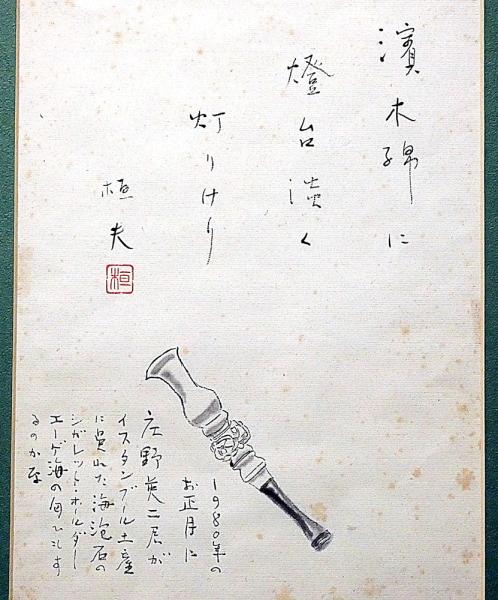 濱木綿に
燈台淡く
灯りけり
桓夫
桓
1980年の
お正月に
庄野英二氏が
イスタンブール土産
に呉れた海泡石の
シガレット・ホルダー
エーゲ海の匂ひがす
るのかな